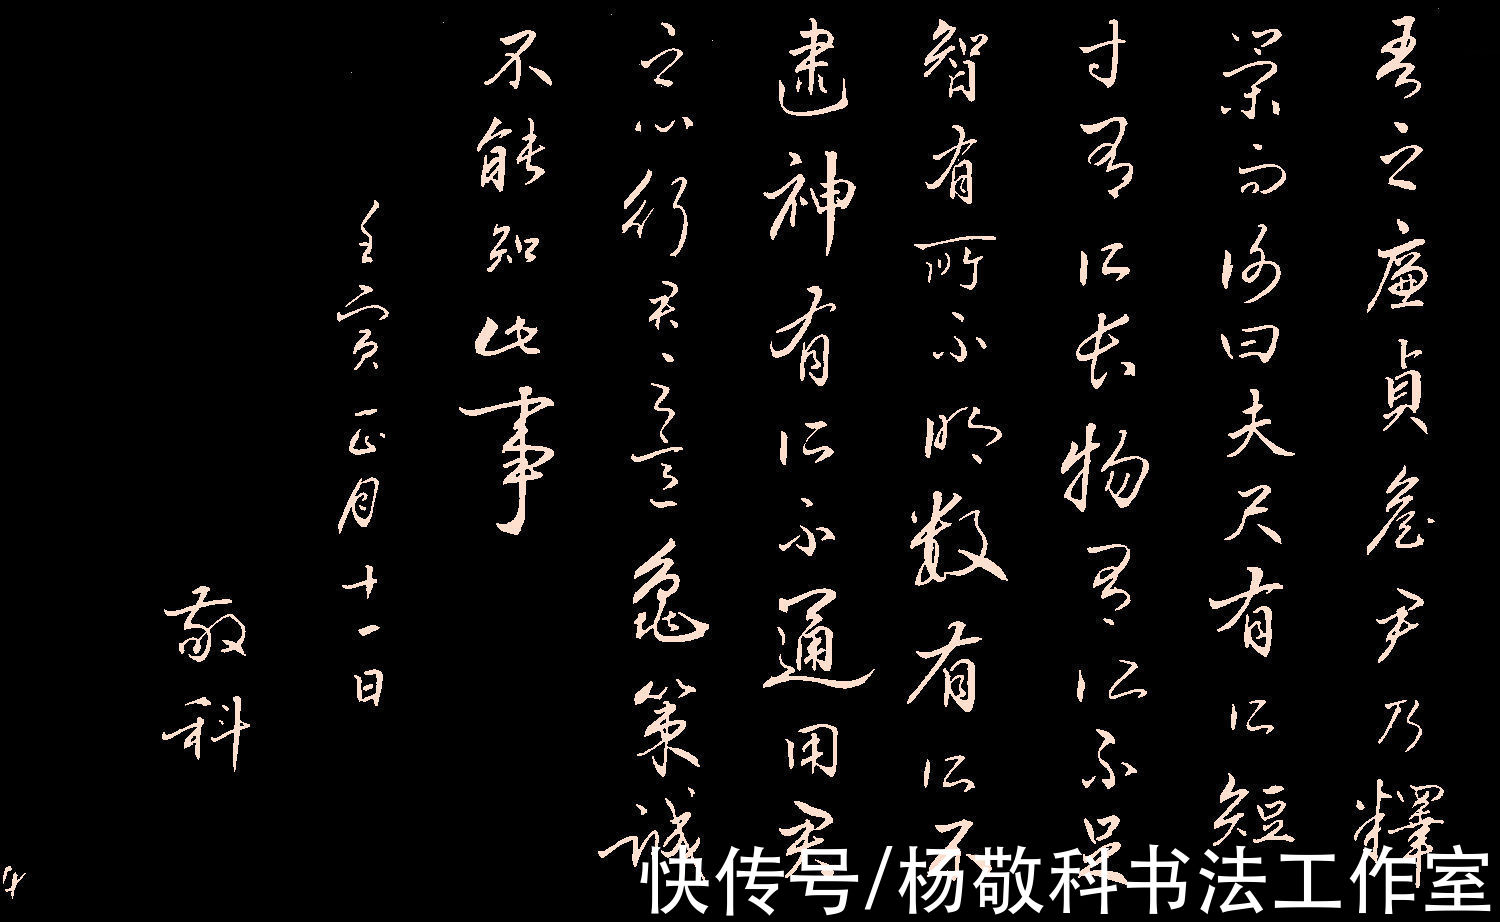 吾之廉貞詹尹乃釋
策而謝曰夫尺有所短
寸有所长物有所不足
智有所不明数有所不
逮神有所不通用君
之心行君之意龜策誠
不能知此事
壬寅正月十一日
敬科
快传号/杨敬科书法工作室